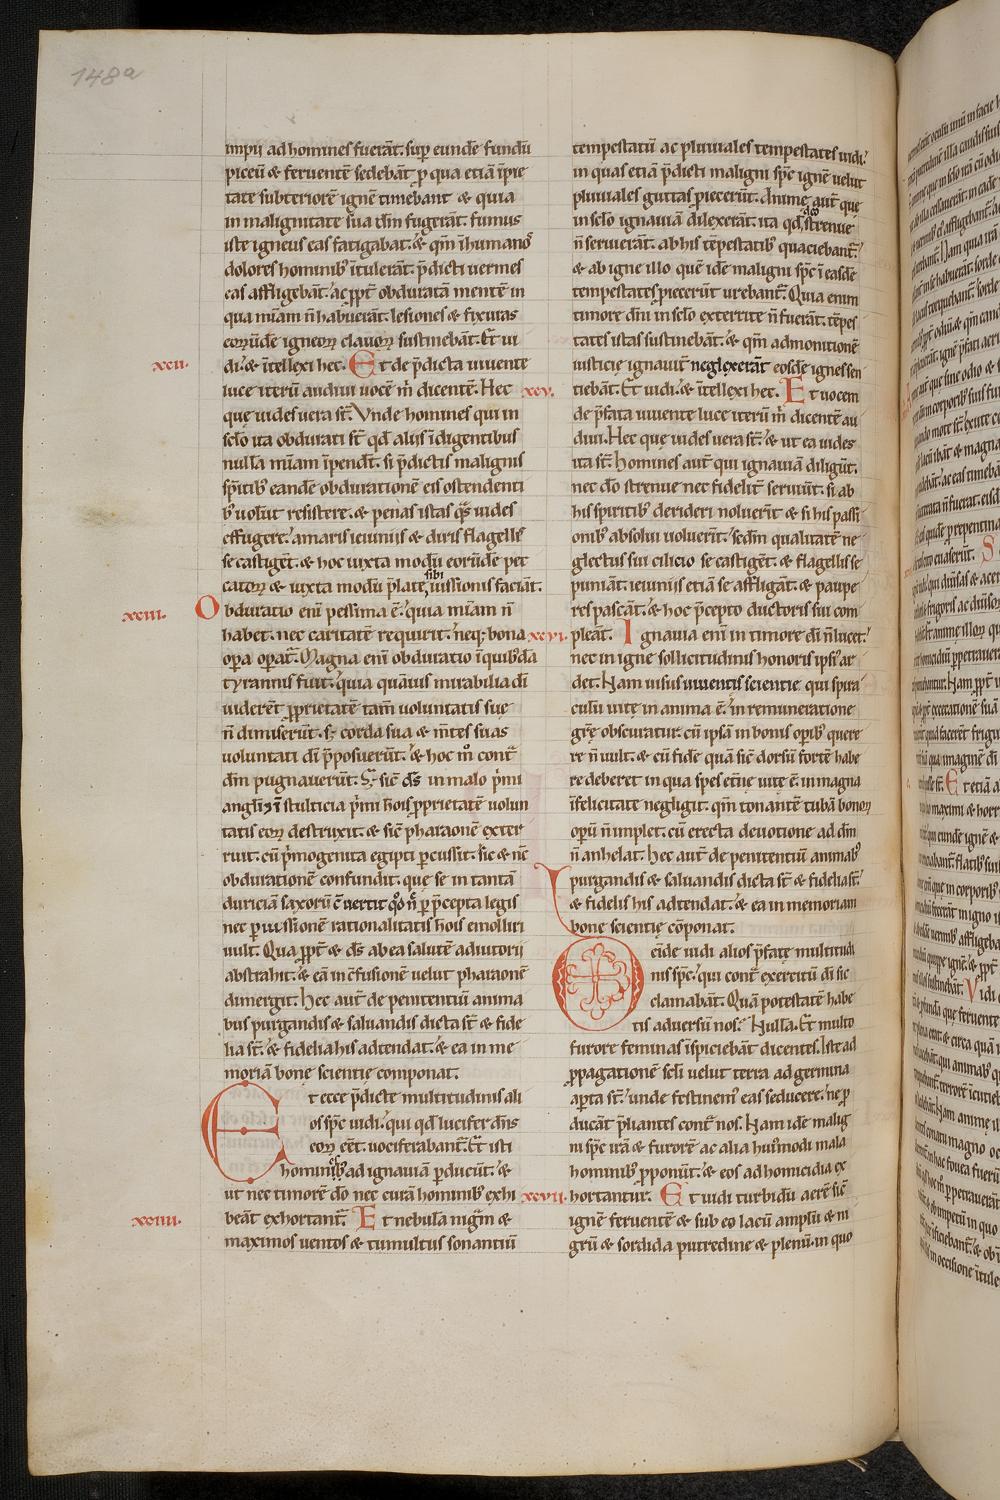 148a
impii ad homines fuerāt. sup̱ eundē fundū
piceū & feruentē sedebāt ꝑ qua etiā īpie
tate subteriorē ignē timebant & quia
in malignitate sua dīm fugerāt. fumus
iste igneus eas fatigabat. & qm̄ īhumanos
dolores hominib; ītulerāt. p̄dicti uermes
eas affligebāt. ac ꝓpt̄ obduratā mentē in
qua mīam n̄ habuerāt. lesiones & fixuras
eoꝝūdē igneoꝝ clauoꝝ sustinebāt. Et ui
xcii. di. & ītellexi hec. Et de p̄dicta uiuente
luce iterū audiui uocē m̄ dicentē. Hec
que uides uera st̄. Vnde homines qui in
sclo ita obdurati st̄ qd̄ aliis īdigentibus
nullā mīam īpendt̄. si p̄dictis malignis
sp̄itib; eandē obdurationē eis ostendenti
b; uolūt resistere. & penas istas q̄s uides
effugere. amaris ieiuniis & duris flagellis
se castigēt. & hoc iuxta modū eorūdē pec
catoꝝ & iuxta modū p̄late sibi iussionis faciāt.
xciii. Obduratio enī pessima ē. quia mīam n̄
habet. nec caritatē requirit. neq; bona
opa opat̄. Magna enī obduratio ī quib;dā
tyrannis fuit. quia quāuis mirabilia dī
uiderēt ꝓprietatē tam̄ uoluntatis sue
n̄ dimiserūt. s; corda sua & mētes suas
uoluntati dī p̄posuerūt. & hoc m̄o cont̄
dm̄ pugnauerūt. S; sic̄ ds̄ in malo p̄mi
angli & ī stulticia p̄mi hōis ꝓprietatē uolun
tatis eoꝝ destruxit. & sic̄ pharaonē exter
ruit. cū p̄mogenita egipti ꝑcussit. sic & nc̄
obdurationē confundit. que se in tantā
duriciā saxorū cūertit qd̄ n̄ ꝑ p̄cepta legis
nec ꝑ iussionē rationalitatis hōis emolliri
uult. Qua ꝓpt̄ & ds̄ ab ea salutē adiutorii
abstrahit. & eā in cfusionē uelut pharaonē
dimergit. Hec aut̄ de penitentiū anima
bus purgandis & saluandis dicta st̄ & fide
lia st̄. & fidelis his adtendat. & ea in me
moriā bone scientie componat.
Et ecce p̄dicte multitudinis ali
os sp̄c uidi. qui qd̄ lucifer dn̄s
eoꝝ eēt. uociferabant̄. Et isti
homines ad ignauiā ꝑducūt. &
ut nec timorē dō nec curā hominib; exhi
xciiii. beāt exhortant̄. Et nebulā niḡm &
maximos uentos & tumultus sonantiū
tempestatū ac pluuiales tempestates uidi.
in quas etiā p̄dicti maligni sp̄c ignē uelut
pluuiales guttas ꝓiecerūt. Anime aut̄ que
in sclo ignauiā dilexerāt. ita qd̄ dō strenue
n̄ seruierāt. ab his tēpestatib; quaciebant̄.
& ab igne illo quē idē maligni sp̄c ī easdē
tempestates ꝓiecerūt urebant̄. Quia enim
timore dm̄ in sclo exterrite n̄ fuerāt. tēpes
tates istas sustinebāt. & qm̄ admonitionē
iusticie ignauit̄ neglexerāt eosdē ignes sen
xcv. tiebāt. Et uidi. & ītellexi hec. Et uocem
de p̄fata uiuente luce iterū m̄ dicentē au
diui. Hec que uides uera st̄. & ut ea uides
ita st̄. Homines aut̄ qui ignauiā diligūt.
nec dō strenue nec fidelit̄ seruiūt. si ab
his spiritib; derideri noluerīt & si his passi
onib; absolui uoluerīt. sedm̄ qualitatē ne
glectus sui cilicio se castigēt. & flagellis se
puniāt. ieiuniis etiā se affligāt. & paupe
res pascāt. & hoc p̄cepto ductoris sui com
xcvi. pleāt. Ignauia enī in timore dī n̄ lucet.
nec in igne sollicitudinis honoris ipsi ar
det. Nam uisus uiuentis scientie qui spira
culū uite in anima ē. in remuneratione
gr̄e obscuratur. cū ipsā in bonis opib; quere
re n̄ uult. & cū fidē quā sic̄ dorsū fortē habe
re deberet in qua spes et̄ne uite ē. in magna
īfelicitate negligit. qm̄ tonantē tubā bonoꝝ
opū n̄ implet. cū erecta deuotione ad dm̄
n̄ anhelat. Hec aut̄ de penitentiū animab;
purgandis & saluandis dicta st̄ & fidelia st̄.
& fidelis his adtendat. & ea in memoriam
bone scientie cōponat.
Deide uidi alios p̄fate multitudi
nis sp̄c. qui cont̄ exercitū dī sic
clamabāt. Quā potestatē habe
tis aduersū nos. Nulla. Et multo
furore feminas īspiciebāt dicentes. Iste ad
ꝓpagationē scli uelut terra ad germina
apta st̄. unde festinem̄ eas seducere. ne ꝑ
ducāt p̄liantes cont̄ nos. Nam idē malig
ni sp̄c irā & furorē ac alia hui;modi mala
hominib; ꝓponūt. & eos ad homicidia ex
xcvii. hortantur. Et uidi turbidū aerē sic̄
ignē feruentē & sub eo lacū amplū & ni
grū & sordida putredine & plenū. in quo